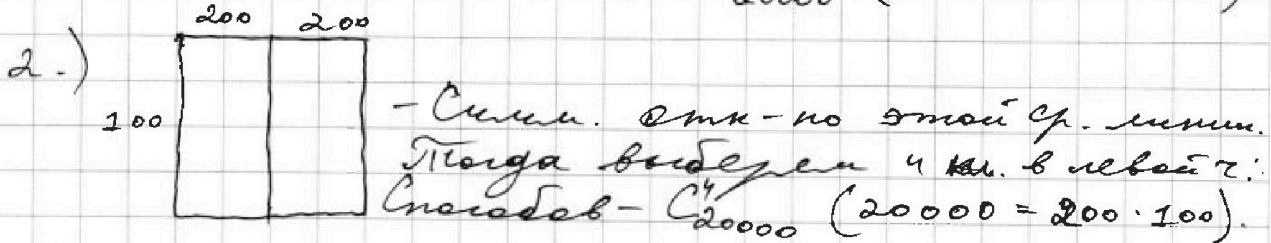 200 200
2.) 100 - Симм. отн-но этой ср. линии.
Тогда выберем 4 кл. в левой ч:
Способов - C⁴₂₀₀₀₀ (20000 = 200 · 100).